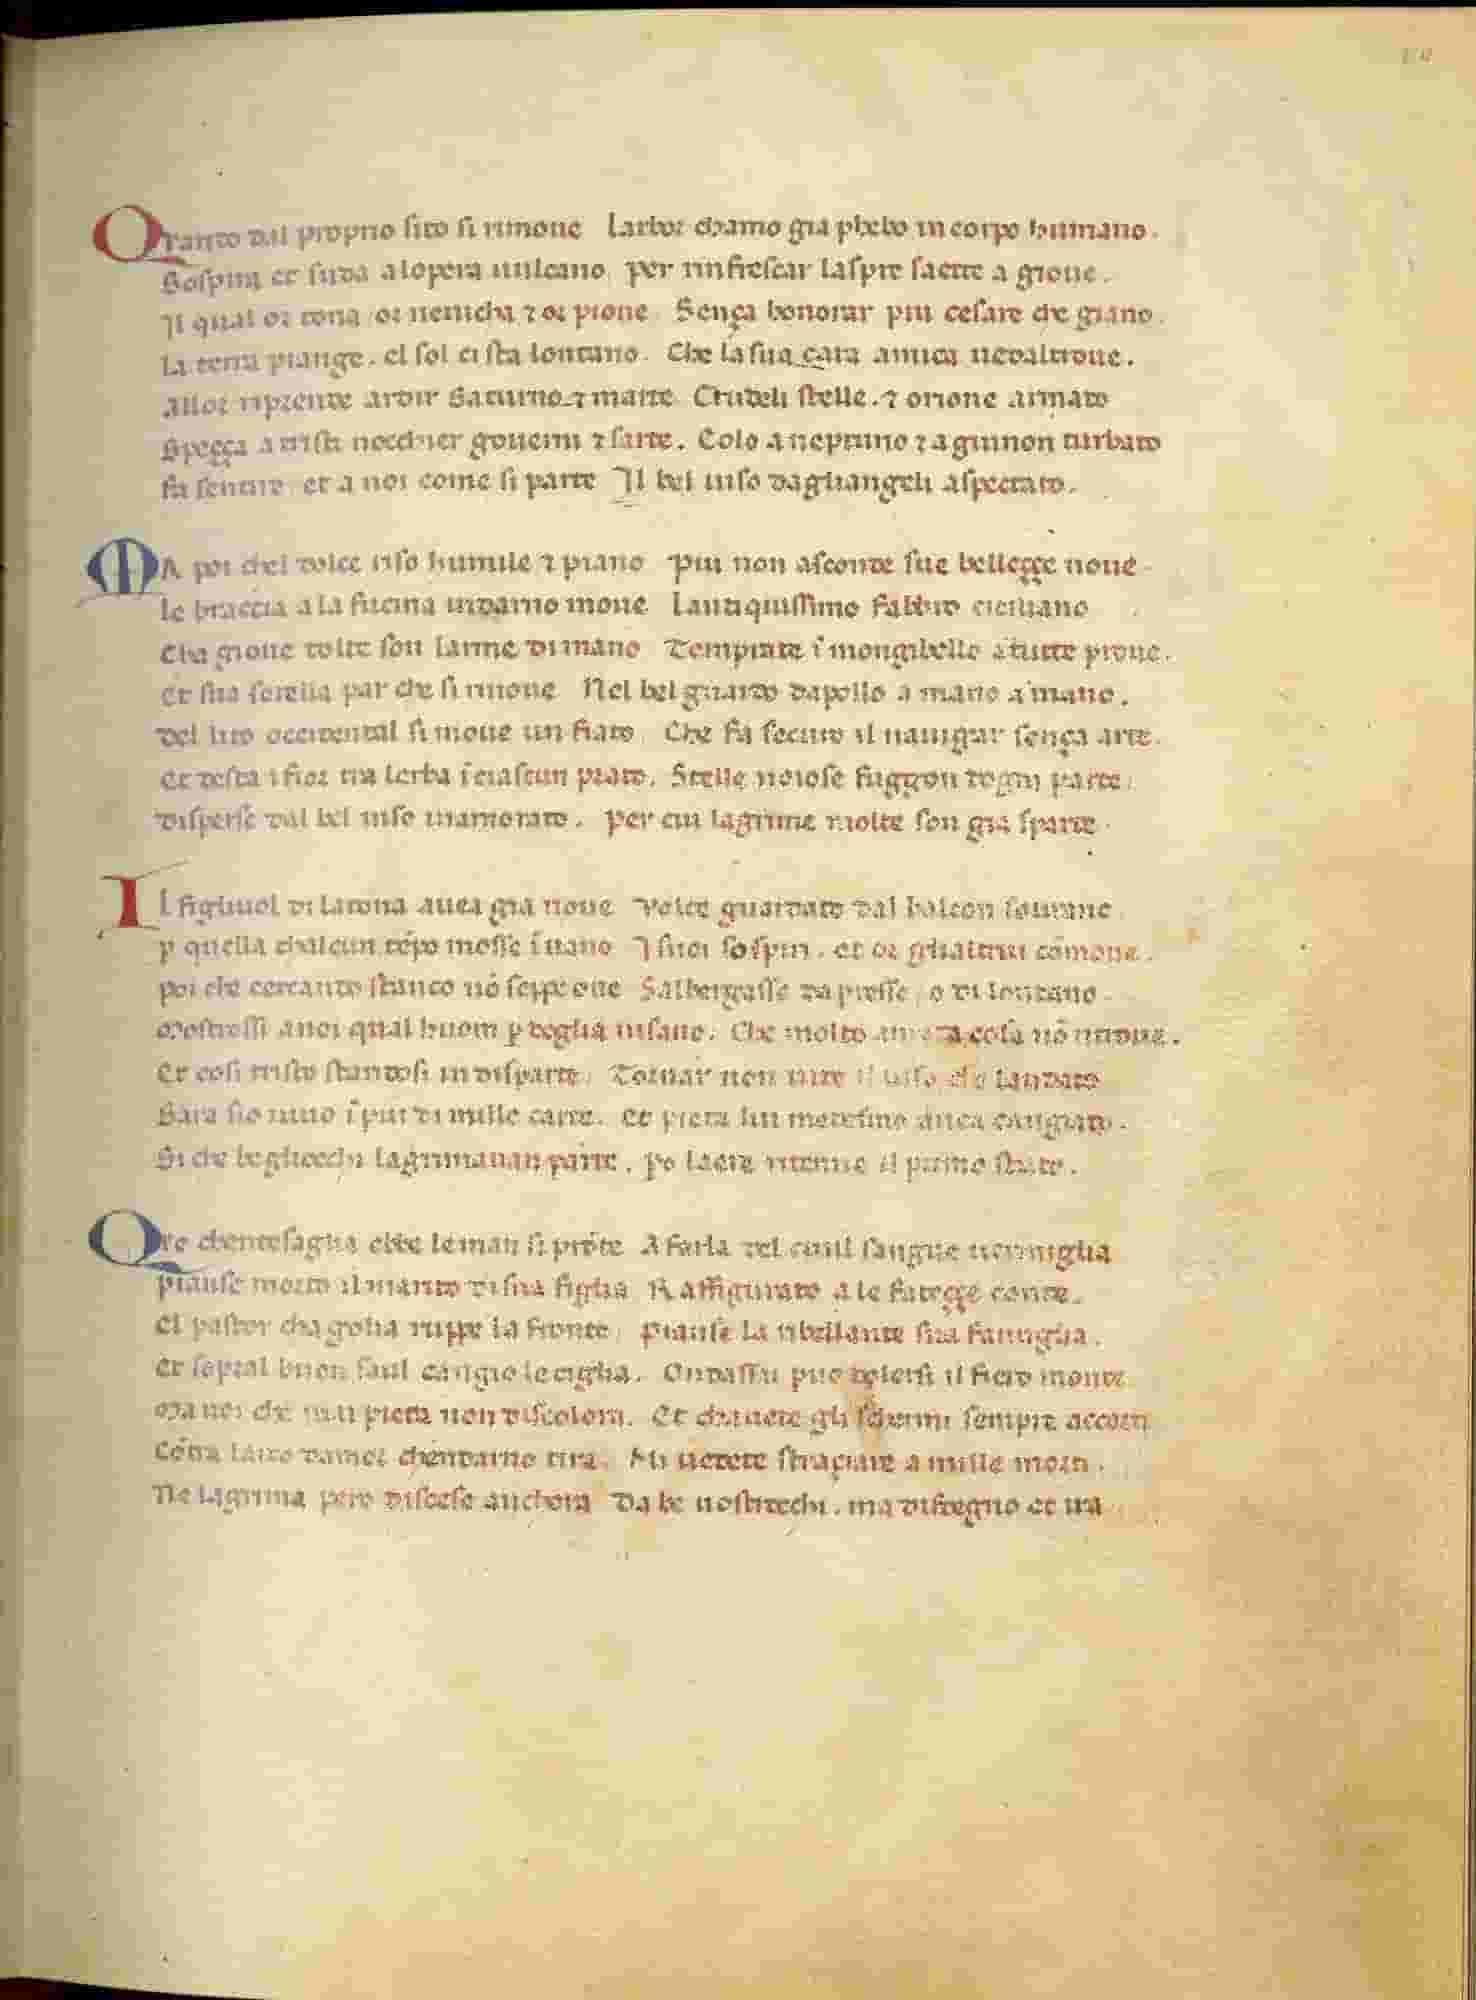 Quando dal proprio sito si rimoue Larbor chamo gia phebo in corpo humano.
Sospira et suda alopera uulcano per rinfrescar laspre saette a gioue.
Il qual or tona or neuicha ⁊ or pioue Sença honorar piu cesare che giano.
La terra piange. el sol ci sta lontano. Che la sua cara amica uedaltroue.
Allor riprende ardir Saturno ⁊ marte Crudeli stelle. ⁊ orione armato
Speçça a tristi nocchier gouerni ⁊ sarte. Eolo a neptuno ⁊ a giunon turbato
fa sentire et a noi come si parte Il bel uiso dagliangeli aspectato.
MA poi chel dolce riso humile ⁊ piano Piu non asconde sue belleççe noue
le braccia a la fucina indarno moue Lantiquissimo fabbro ciciliano
Cha gioue tolte son larme di mano Temprate ī mongibello a tutte proue.
Et sua sorella par che si rinoue Nel bel guardo dapollo a mano a mano.
Del lito occidental si moue un fiato Che fa securo il nauigar sença arte.
Et desta i fior tra lerba ī ciascun prato. Stelle noiose fuggon dogni parte
Disperse dal bel uiso inamorato. Per cui lagrime molte son gia sparte.
Il figliuol di latona auea gia noue Volte guardato dal balcon sourano
p quella chalcun tēpo mosse ī uano I suoi sospiri. et or glialtrui cōmoue.
Poi che cercando stanco nō seppe oue Salbergasse da presse o di lontano.
Mostrossi anoi qual huom p doglia insano. Che molto amata cosa nō ritroua.
Et cosi tristo standosi in disparte Tornar non uide il uiso che laudato
Sara sio uiuo ī piu di mille carte. Et pieta lui medesmo auea cangiato.
Si che begliocchi lagrimauan parte. po laere ritenne il primo stato.
Que chentesaglia ebbe leman si prōte A farla del ciuil sangue uermiglia
pianse morto il marito di sua figlia Raffigurato a le fateççe conte.
El pastor cha golia ruppe la fronte Pianse la ribellante sua famiglia.
Et sopral buon saul cangio le ciglia. Ondassai puo dolersi il fiero monte
Ma uoi che mai pieta non discolora. Et chauete gli schermi sempre accorti
Cōtra larco damor chendarno tira. Mi uedete straçiare a mille morti.
Ne lagrima pero discese anchora Da be uostriocchi. ma disdegno et ira